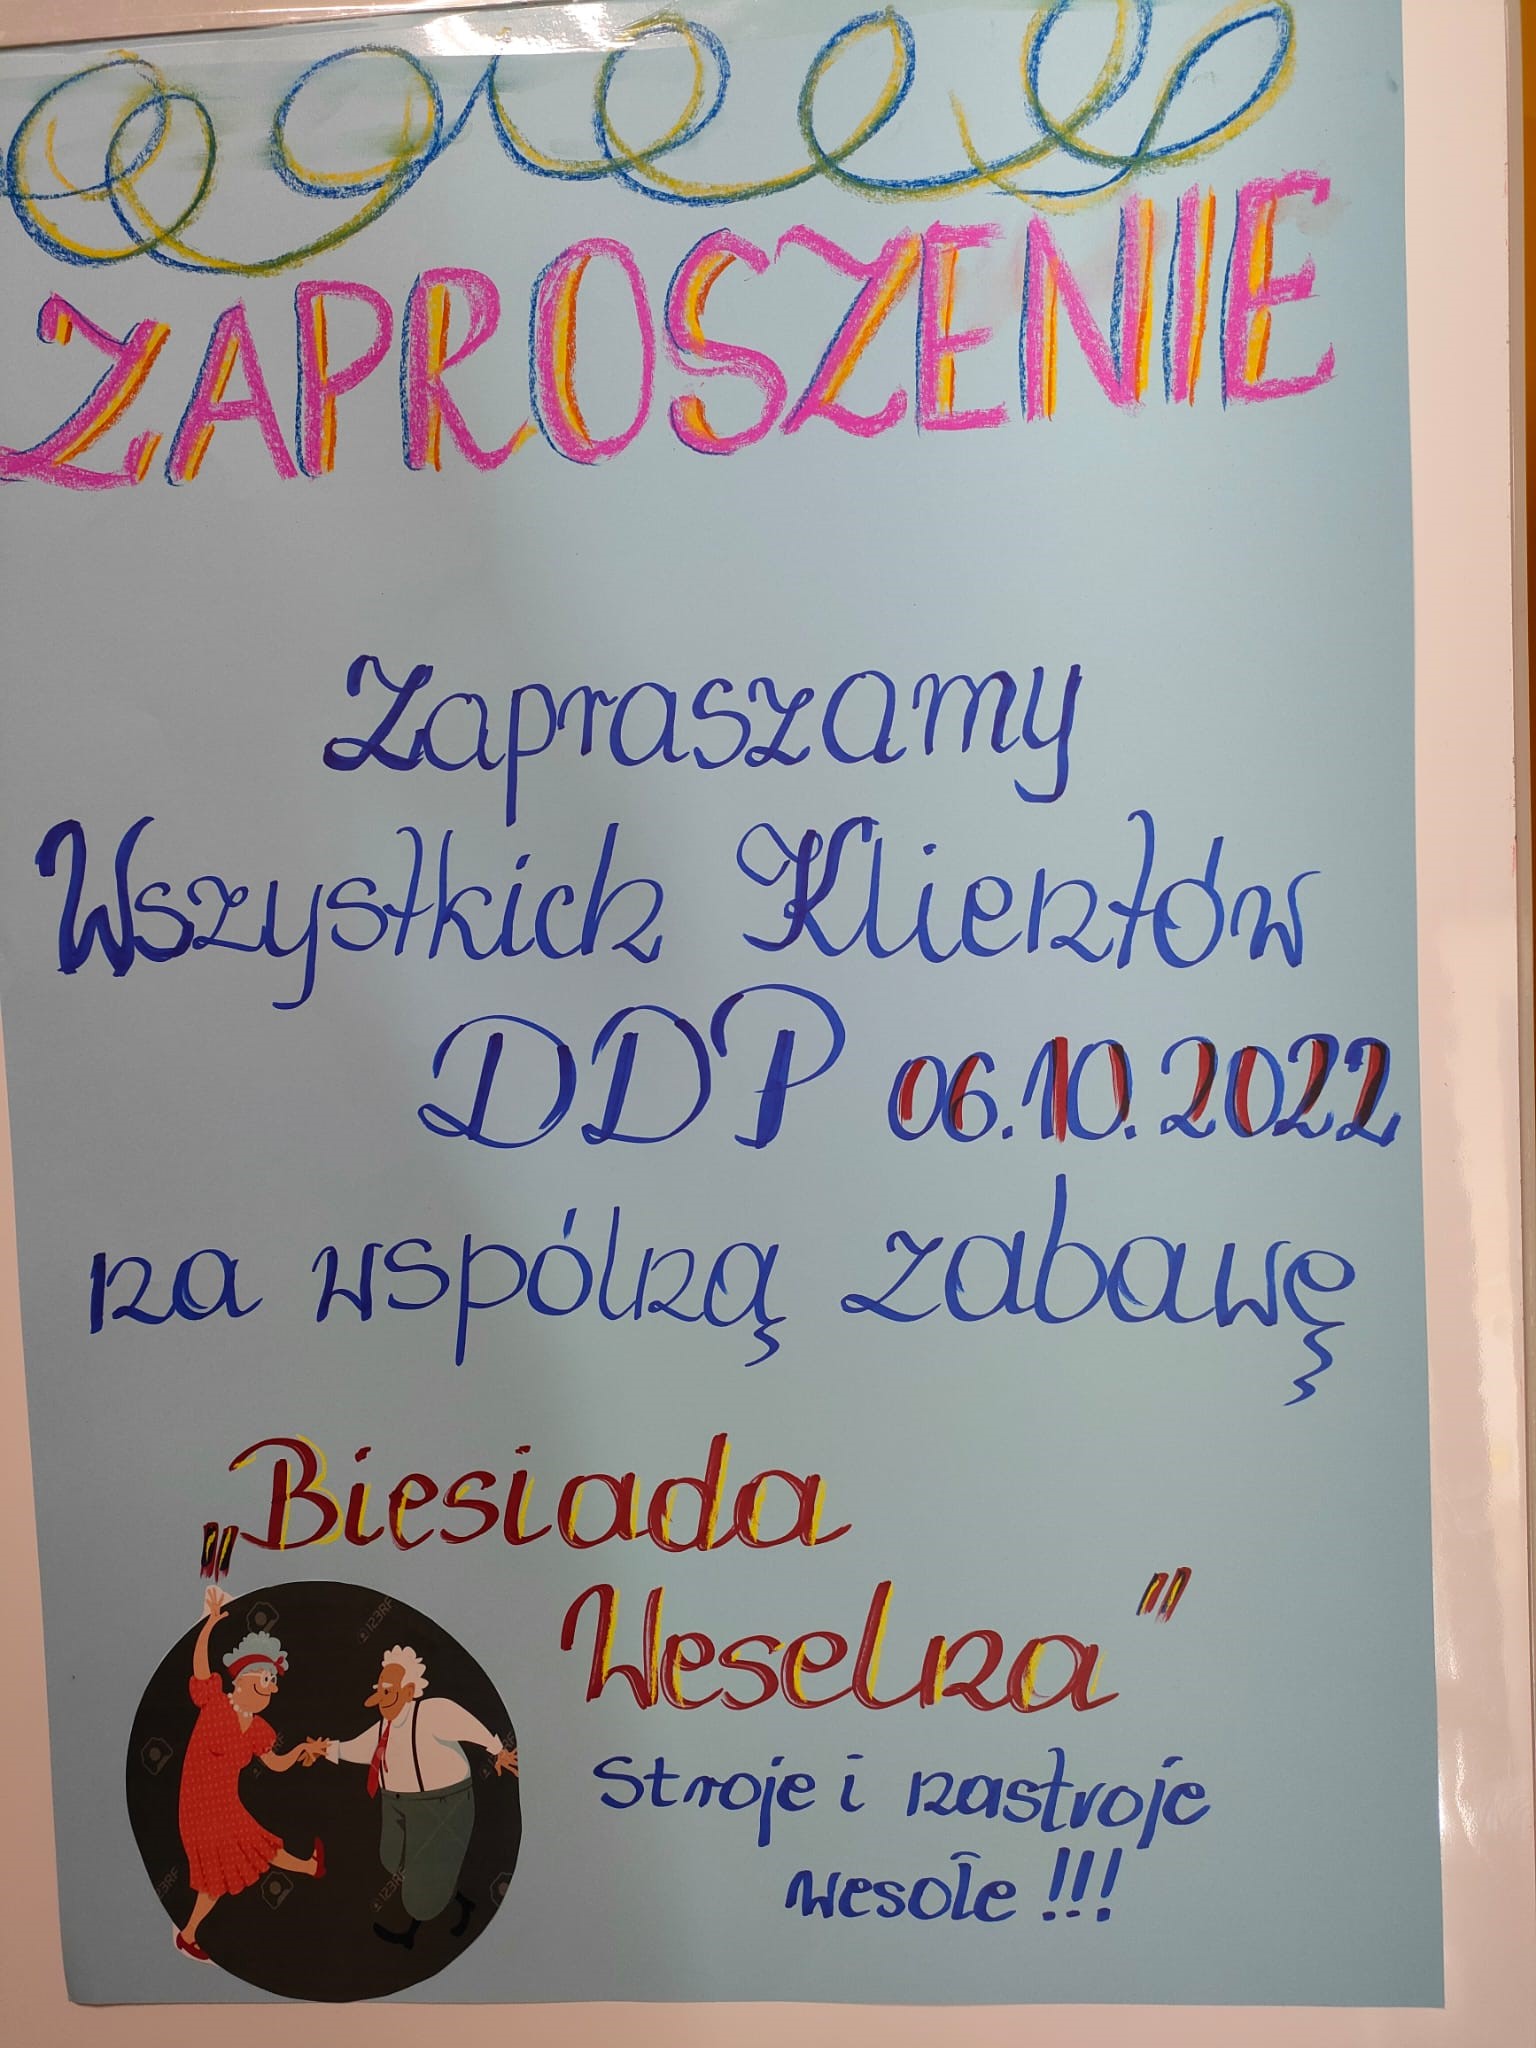 ZAPROSZENIE
Zapraszamy
Wszystkich Klientów
DDP 06.10.2022
na wspólną zabawę
„Biesiada
Weselna"
Stroje i nastroje
wesołe!!!
123RF
123RF
123RF
123RF
123RF